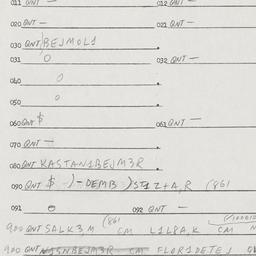 011 QNT — 012 QNT —
020 QNT — 021 QNT —
030 QNT BEJMOL1
031 0 032 QNT —
040 0
050 0
060 QNT $ 061 QNT —
070 QNT —
080 QNT KASTAN1BEJM3R
090 QNT $ -)-DEMB )ST1Z+A,R (861
091 0 092 QNT —
(861
900 QNT SALK3M CM L1L8A,K CM
900 QNT N1SNBEJM3R CM FLOR1DETEJ